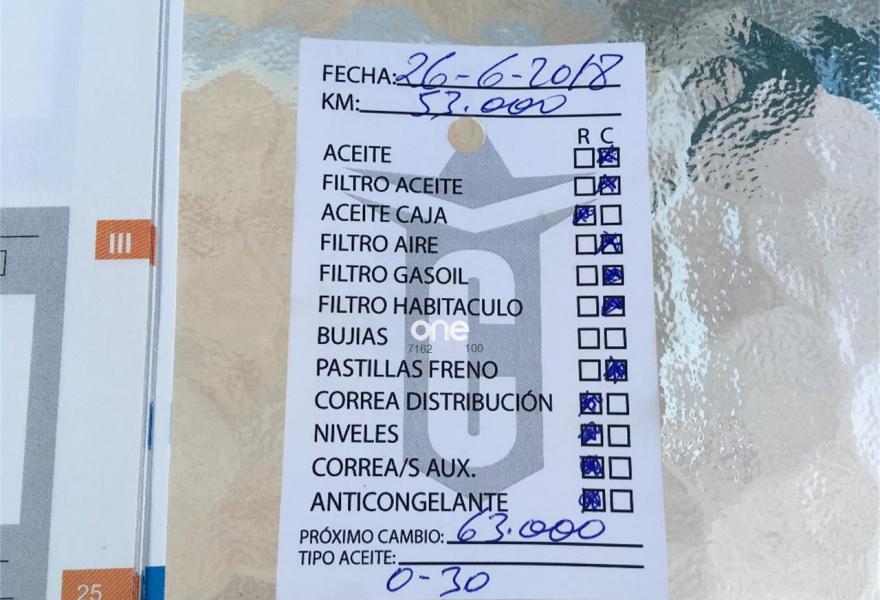 FECHA: 26-6-2018
KM: 53.000
R C
ACEITE
FILTRO ACEITE
ACEITE CAJA
FILTRO AIRE
FILTRO GASOIL
FILTRO HABITACULO
one
BUJIAS
7162 100
PASTILLAS FRENO
CORREA DISTRIBUCIÓN
NIVELES
CORREA/S AUX.
ANTICONGELANTE
PRÓXIMO CAMBIO: 63.000
TIPO ACEITE:
0-30
III
25